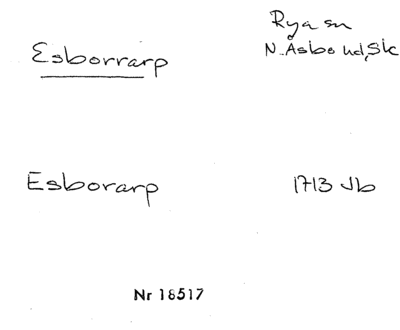 Esborrarp
Rya sn
N. Åsbo hd, Sk
Esborarp
1713 Jb
Nr 18517